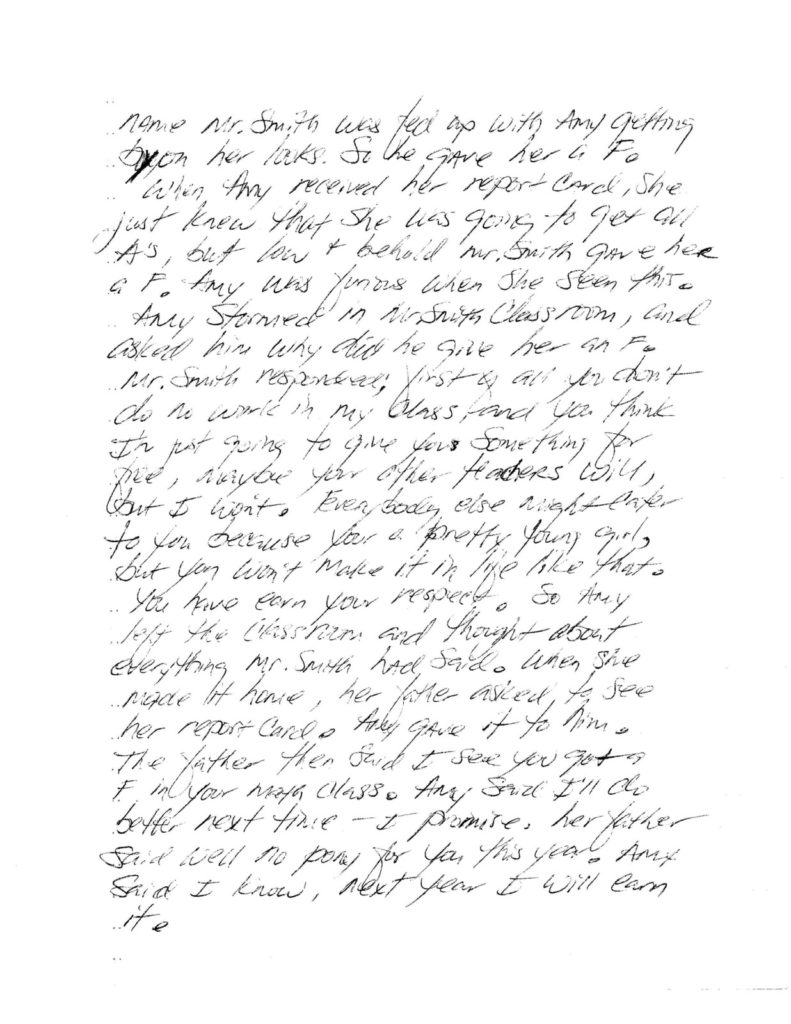 name Mr. Smith was fed up with Amy getting
by on her looks. So he gave her a F.
When Amy received her report Card, She
just knew that She was going to get all
A's, but low + behold Mr. Smith gave her
a F. Amy was furious when She seen this.
Amy Stormed in Mr. Smith Classroom, and
asked him why did he give her an F.
Mr. Smith responded; first of all you don't
do no work in my Class, and you think
I'm just going to give you Something for
free, maybe your other teachers will,
but I won't. Everybody else might cater
to you because your a pretty young girl,
but you won't make it in life like that.
You have earn your respect. So Amy
left the Classroom and thought about
everything Mr. Smith had said. When she
made it home, her father asked to see
her report Card. Amy gave it to him.
The father then Said I see you got a
F in your math Class. Amy Said I'll do
better next time - I promise. her father
Said well no pony for you this year. Amy
Said I know, next year I will earn
it.